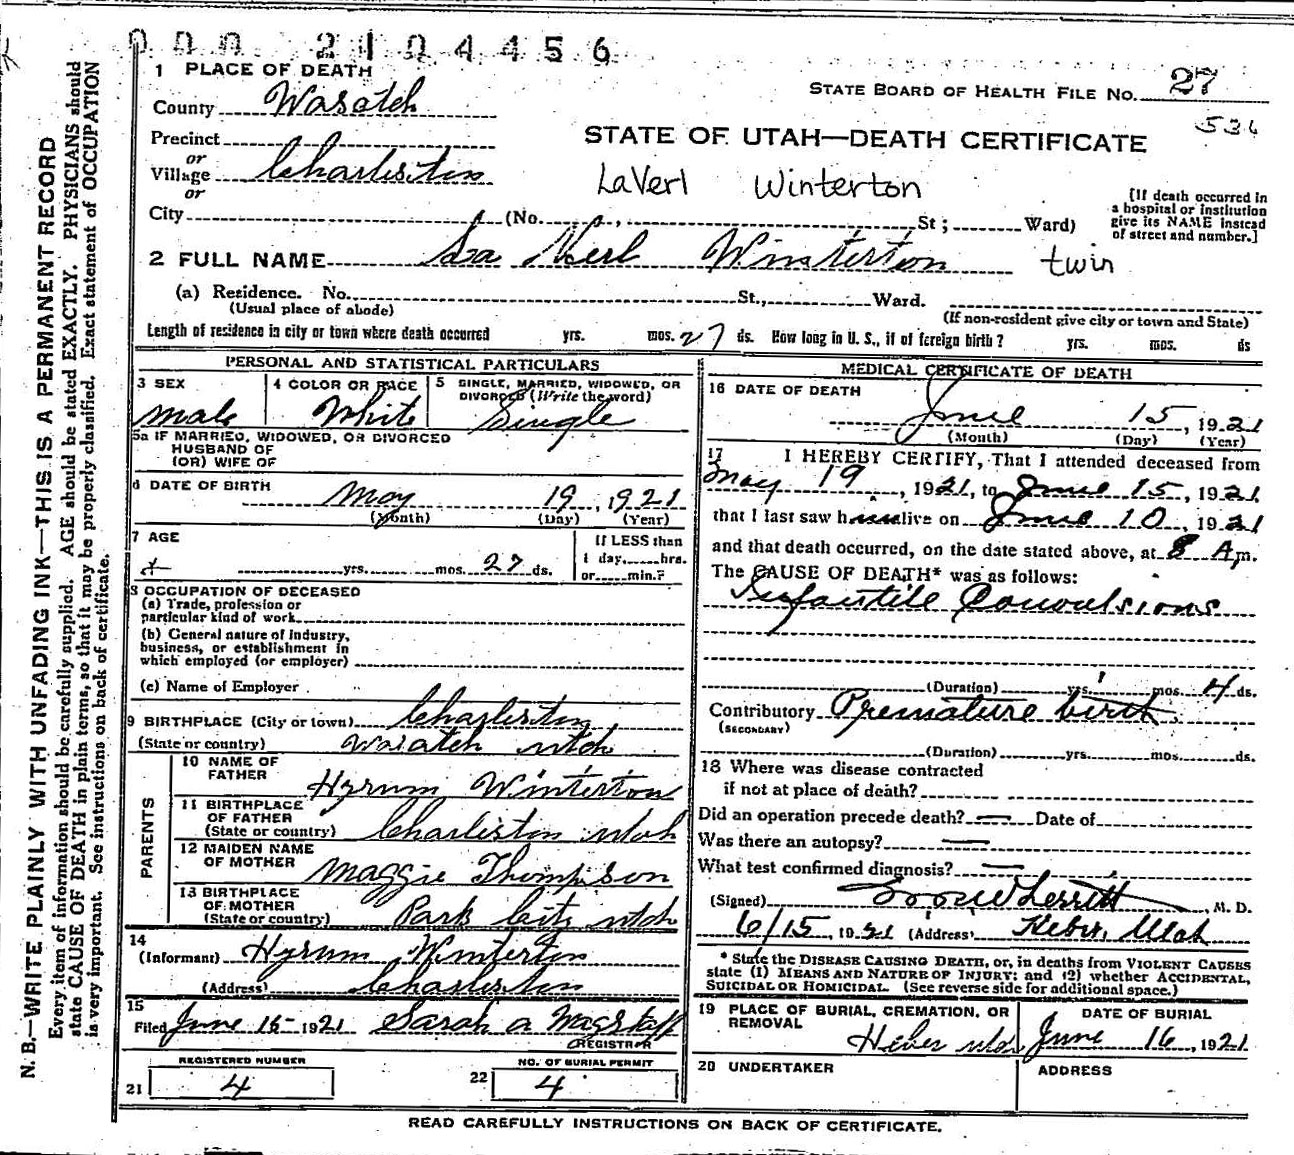 000 2104456
1 PLACE OF DEATH
STATE BOARD OF HEALTH FILE NO. 27
County Wasatch
534
Precinct
STATE OF UTAH—DEATH CERTIFICATE
or
Village Charleston
LaVerl Winterton
or
City (No. , St; Ward)
[If death occurred in
a hospital or institution
give its NAME instead
of street and number.]
2 FULL NAME La Verl Winterton twin
(a) Residence. No. St., Ward.
(Usual place of abode)
(If non-resident give city or town and State)
Length of residence in city or town where death occurred yrs. mos. 27 ds. How long in U. S., if of foreign birth? yrs. mos. ds
PERSONAL AND STATISTICAL PARTICULARS
3 SEX
male
4 COLOR OR RACE
White
5 SINGLE, MARRIED, WIDOWED, OR
DIVORCED (Write the word)
Single
5a IF MARRIED, WIDOWED, OR DIVORCED
HUSBAND OF
(OR) WIFE OF
6 DATE OF BIRTH May 19, 1921
(Month) (Day) (Year)
7 AGE
yrs. mos. 27 ds.
If LESS than
1 day, hrs.
or min.?
8 OCCUPATION OF DECEASED
(a) Trade, profession or
particular kind of work
(b) General nature of industry,
business, or establishment in
which employed (or employer)
(c) Name of Employer
9 BIRTHPLACE (City or town) Charleston
(State or country) Wasatch Utah
PARENTS
10 NAME OF
FATHER Hyrum Winterton
11 BIRTHPLACE
OF FATHER
(State or country) Charleston Utah
12 MAIDEN NAME
OF MOTHER Maggie Thompson
13 BIRTHPLACE
OF MOTHER
(State or country) Park City Utah
14
(Informant) Hyrum Winterton
(Address) Charleston
15
Filed June 15- 1921 Sarah a Wagstaff
REGISTRAR
REGISTERED NUMBER
21 4
NO. OF BURIAL PERMIT
22 4
MEDICAL CERTIFICATE OF DEATH
16 DATE OF DEATH
June 15, 1921
(Month) (Day) (Year)
17 I HEREBY CERTIFY, That I attended deceased from
May 19, 1921, to June 15, 1921
that I last saw him alive on June 10, 1921
and that death occurred, on the date stated above, at 8 A.m.
The CAUSE OF DEATH* was as follows:
Infantile Convulsions
(Duration) yrs. mos. 4 ds.
Contributory Premature birth
(SECONDARY)
(Duration) yrs. mos. ds.
18 Where was disease contracted
if not at place of death?
Did an operation precede death? — Date of
Was there an autopsy? —
What test confirmed diagnosis? —
(Signed) M. D.
6/15, 1921 (Address) Heber, Utah
* State the DISEASE CAUSING DEATH, or, in deaths from VIOLENT CAUSES
state (1) MEANS AND NATURE OF INJURY; and (2) whether ACCIDENTAL,
SUICIDAL OR HOMICIDAL. (See reverse side for additional space.)
19 PLACE OF BURIAL, CREMATION, OR
REMOVAL
Heber Utah
DATE OF BURIAL
June 16, 1921
20 UNDERTAKER
ADDRESS
READ CAREFULLY INSTRUCTIONS ON BACK OF CERTIFICATE.
N. B.—WRITE PLAINLY WITH UNFADING INK—THIS IS A PERMANENT RECORD
Every item of information should be carefully supplied. AGE should be stated EXACTLY. PHYSICIANS should
state CAUSE OF DEATH in plain terms, so that it may be properly classified. Exact statement of OCCUPATION
is very important. See instructions on back of certificate.